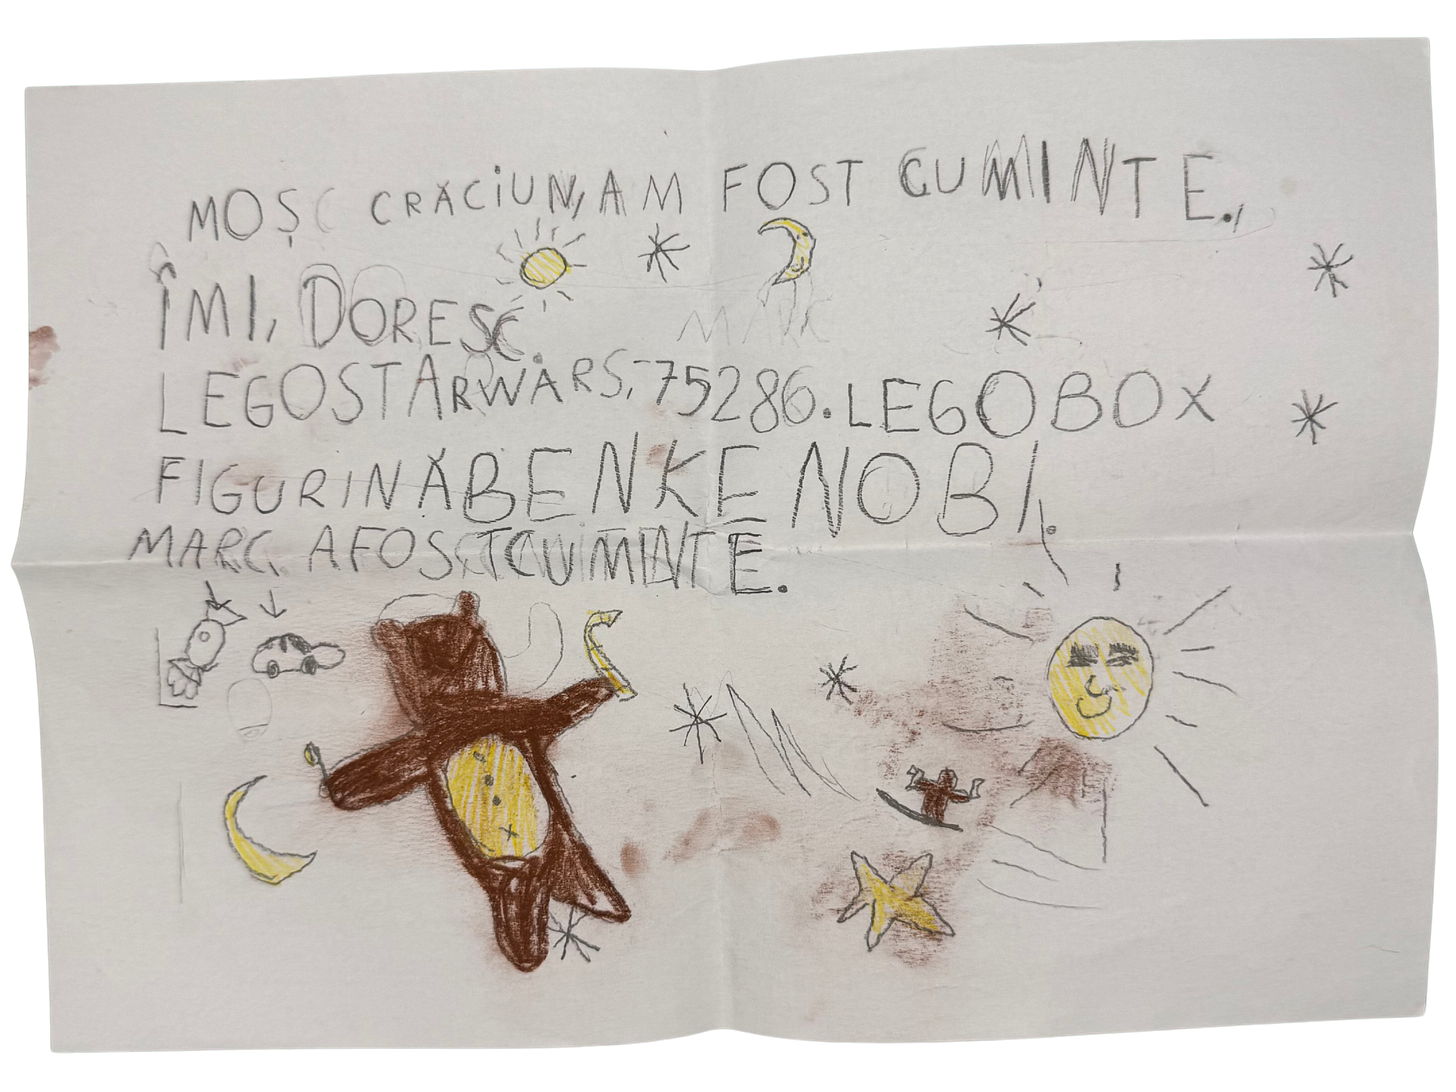 MOȘ CRĂCIUN, AM FOST CUMINTE.,
ÎMI, DORESC
MARC
LEGOSTARWARS, 75286. LEGO BOX
FIGURINĂ BEN KENOBI.
MARC, A FOST CUMINTE.